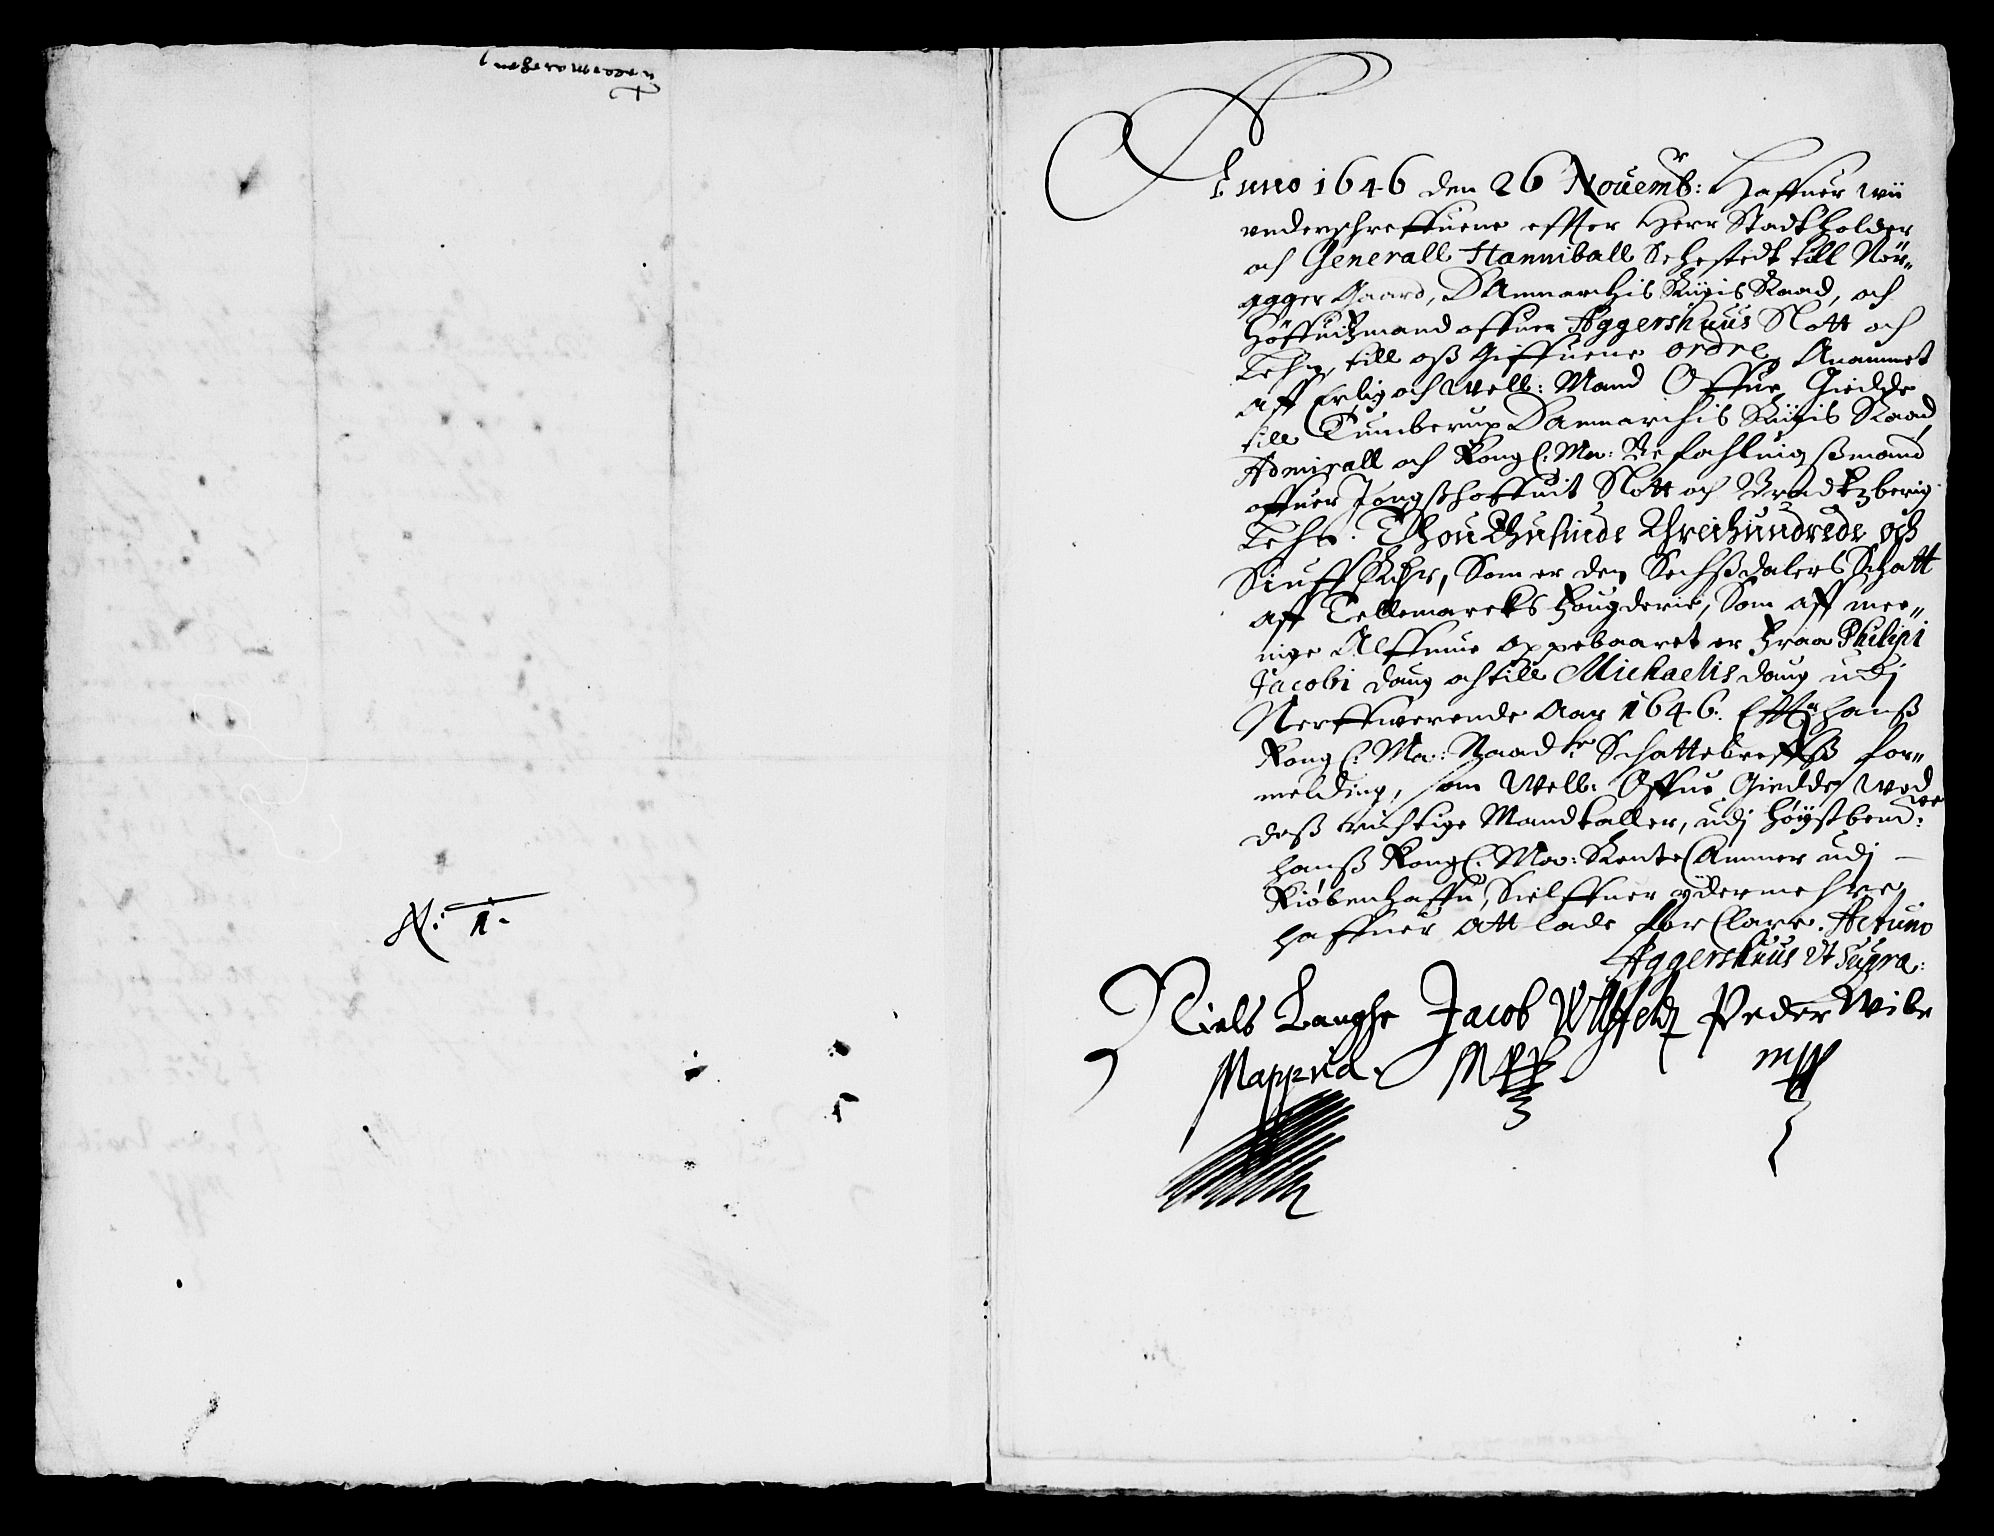 N: 1.
Anno 1646 den 26 Nouembr: Haffuer wii
underschreffuene effter Herr Stadtholder
och Generall Hanniball Sehestedt till Nör-
agger Gaard, Danmarchis Riigis Raad, och
Höffuitzmand offuer Aggershuus Slott och
Lehn, till osß giffuene ordre, Anammet
aff Erlig och Well: Mand Offue Giedde
till Tumberup Danmarchis Riigis Raad
Admirall och Kongl: Ma: Befahlningsmand
offuer Tongsßhoffuit Slott och Bradtzberig
Lehn. Thou Thusinde Threihundrede och
Siuff Rdlr, Som er den Sechsßdalers Schatt
aff Tellemarcks Fougderie, Som aff mee-
nige Alffmue oppebaaret er Fraa Philipi
Jacobi daug och till Michaelis daug udj
Nerffwerende Aar 1646: Effter hansß
Kongl: Ma: Naadte Schattebreffsß for-
melding, som Well: Offue Giedde wed
desß richtige Mandtaller, udj höystbemte:
hansß Kongl: Ma: Rente Cammer udj
Kiöbenhaffn, Sielffuer ydermehre
haffuer att lade forClare. Actum
Aggershuus Vt Supra:
Niels Langhe Jacob Wlfeld Peder Wibe
Mappria. Mpp. mpp